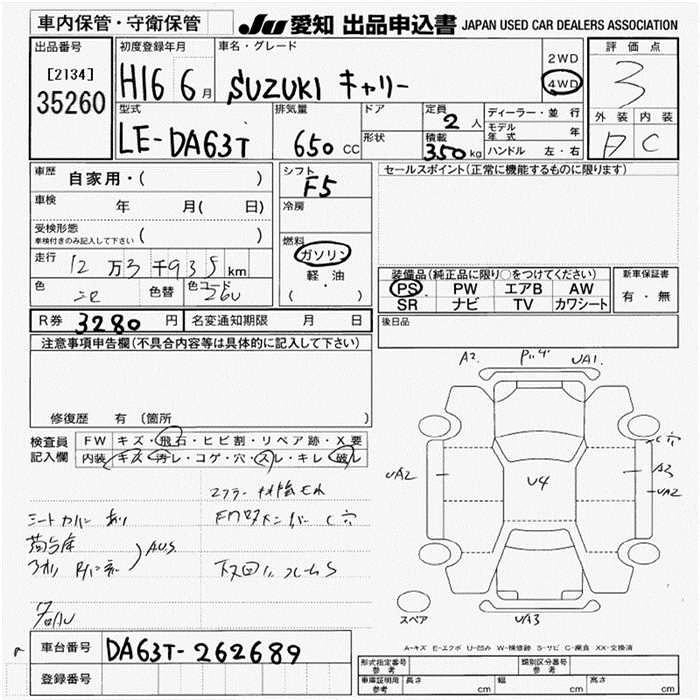 車内保管・守衛保管
JU 愛知 出品申込書 JAPAN USED CAR DEALERS ASSOCIATION
出品番号
[2134]
35260
初度登録年月
H16 6月
車名・グレード
SUZUKI キャリー
2WD
4WD
評価点
3
外装 内装
A C
型式
LE-DA63T
排気量
650 CC
ドア
形状
定員
2 人
積載
350 kg
ディーラー・並行
モデル年式 年
ハンドル 左・右
車歴
自家用・( )
車検
年 月( 日)
受検形態
車検付きのみ記入して下さい ( )
走行
12万3千935km
色
色替
色コード
26U
シフト
F5
冷房
燃料
ガソリン
軽・油
( )
セールスポイント(正常に機能するものに限ります)
装備品(純正品に限り○をつけてください)
PS PW エアB AW
SR ナビ TV カワシート
新車保証書
有・無
R券 3280円 名変通知期限 月 日
後日品
注意事項申告欄(不具合内容等は具体的に記入して下さい)
修復歴 有(箇所 )
検査員記入欄
FW キズ・飛石・ヒビ割・リペア跡・X要
内装 キズ・汚レ・コゲ・穴・スレ・キレ・破ル
シートカバーあり
A2
UA1
C穴
UA2
U4
A3
UA2
スペア
UA3
A-キズ E-エクボ U-凹み W-補修跡 S-サビ C-腐食 XX-交換済
車台番号 DA63T-262689
登録番号
型式指定番号 参考
類別区分番号 参考
車庫証明用 参考 長さ cm 幅 cm 高さ cm